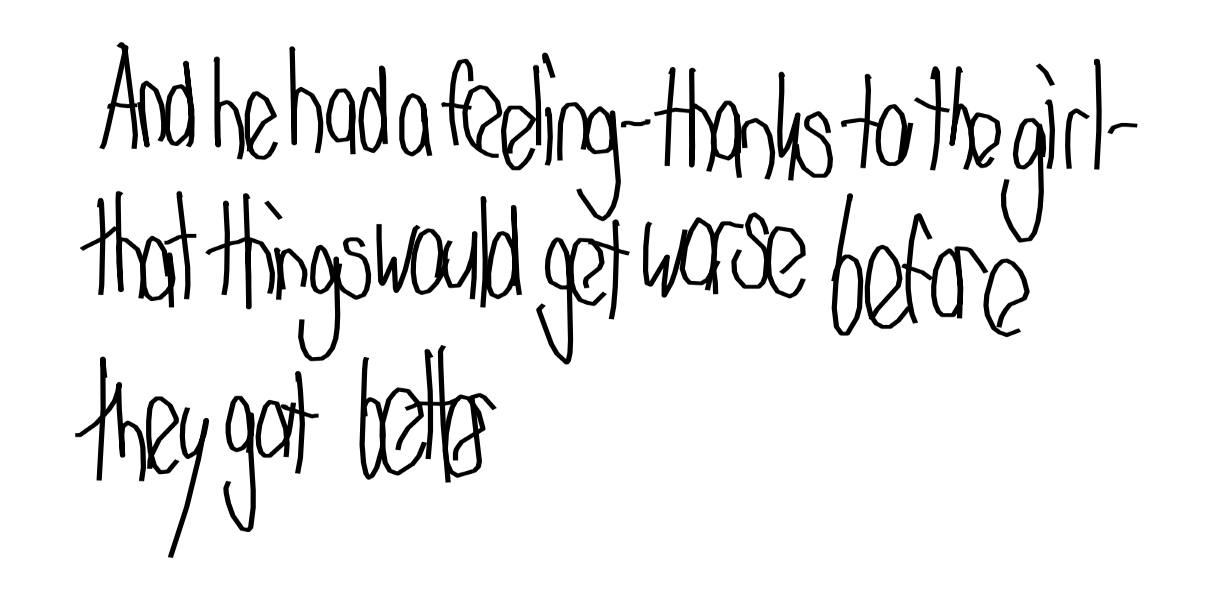 And he had a feeling-thanks to the girl-
that things would get worse before
they got better